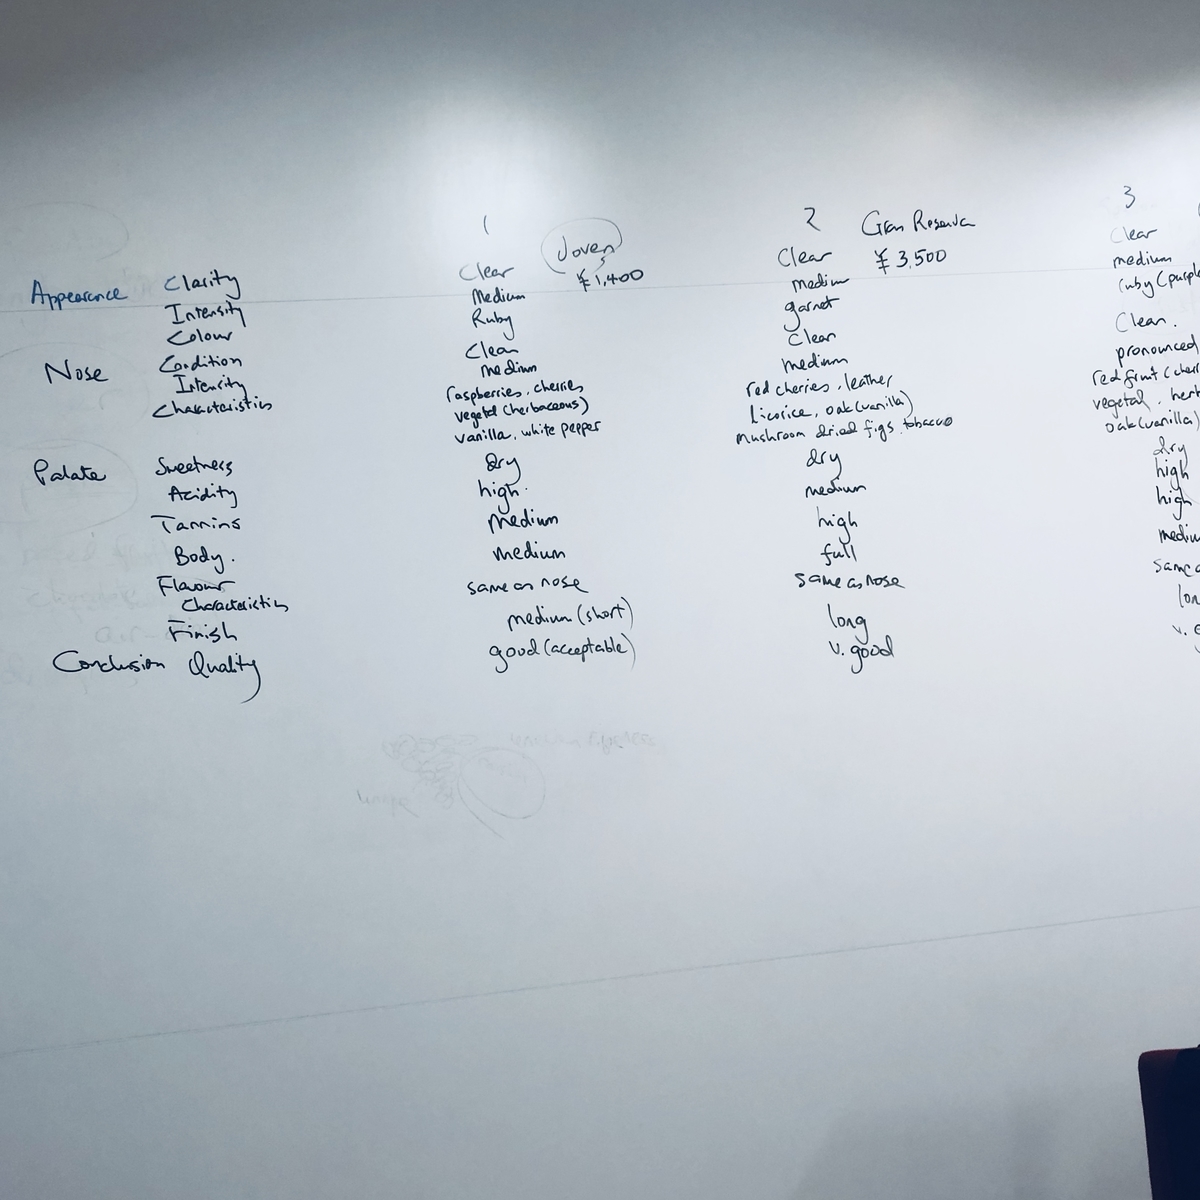 1 2 3
Joven Gran Reserva
¥1,400 ¥3,500
Appearance Clarity Clear Clear Clear
Intensity Medium medium medium
Colour Ruby garnet ruby (purple
Nose Condition Clean Clean Clean.
Intensity medium medium pronounced
Characteristics raspberries, cherries red cherries, leather red fruit (cher
vegetal (herbaceous) licorice, oak (vanilla) vegetal, herb
vanilla, white pepper mushroom dried figs, tobacco oak (vanilla)
Palate Sweetness dry dry dry
Acidity high. medium high
Tannins medium high high
Body. medium full mediu
Flavour same as nose same as nose same a
Characteristics
Finish medium (short) long lon
Conclusion Quality good (acceptable) v. good v.